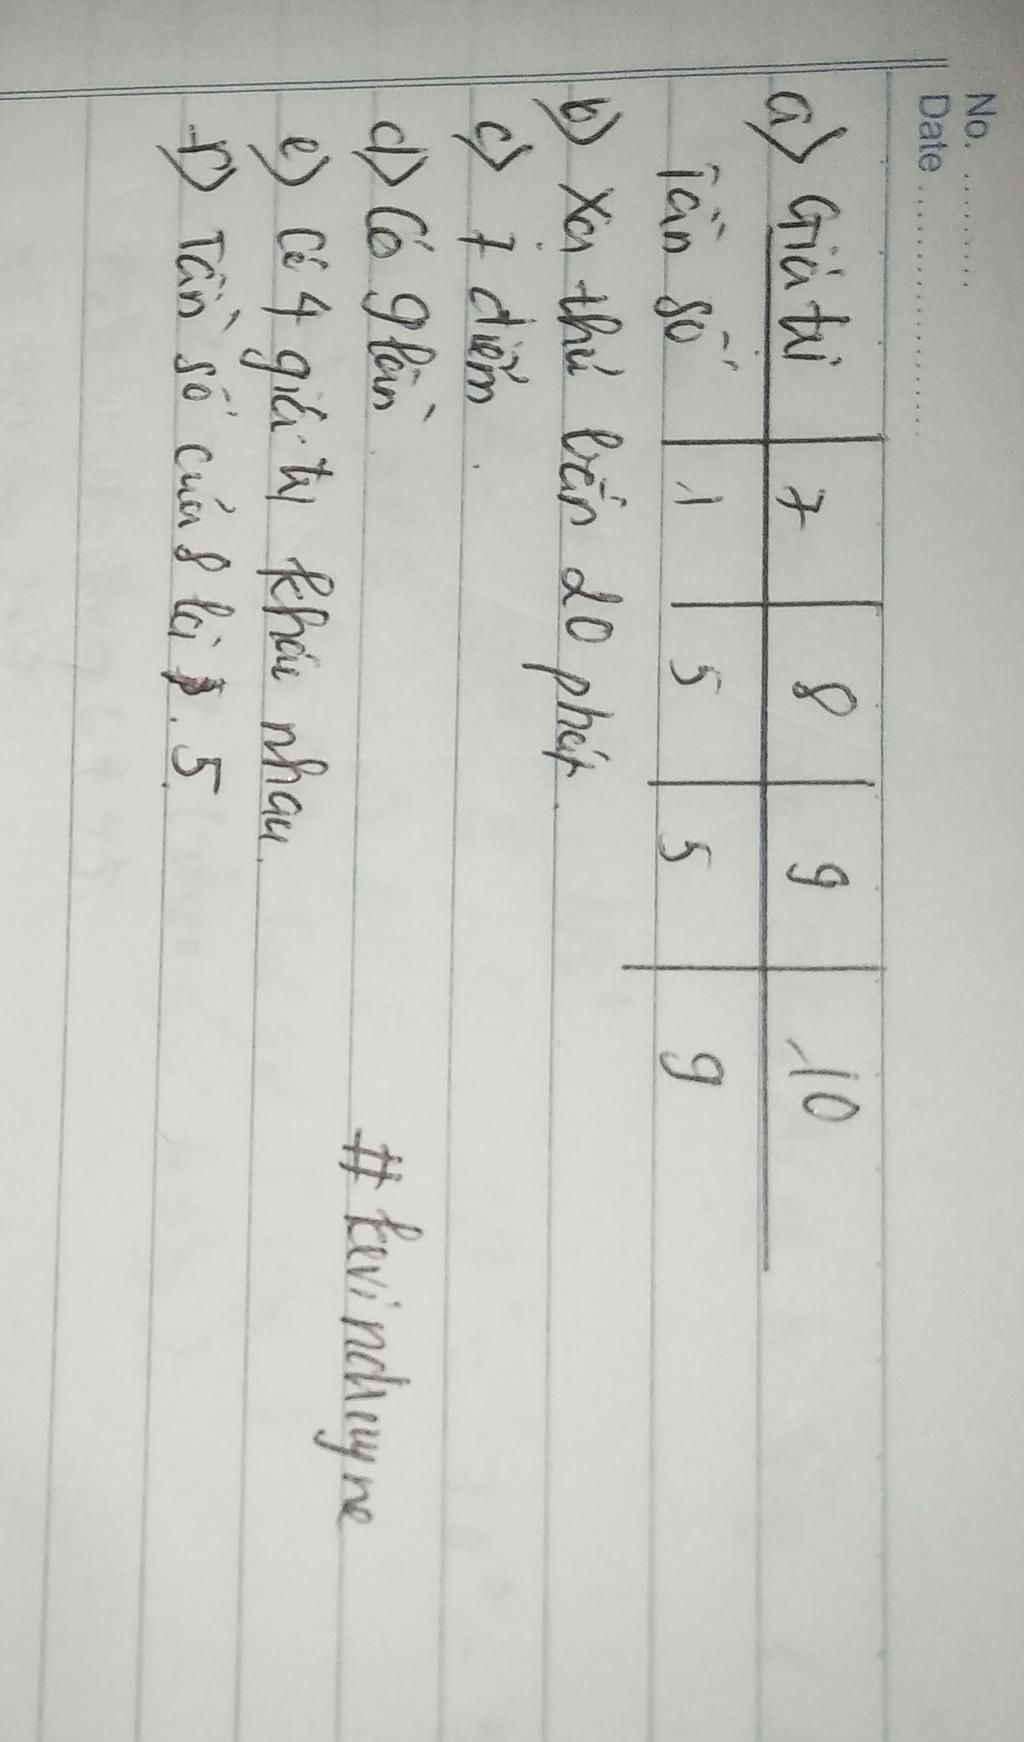 No. ..........
Date ......................
a) Giá trị 7 8 9 10
Tần số 1 5 5 9
b) Xạ thủ bắn 20 phát.
c) 7 điểm.
d) Có 9 lần.
e) Có 4 giá trị khác nhau.
f) Tần số của 8 là 5.
# kevinduyne